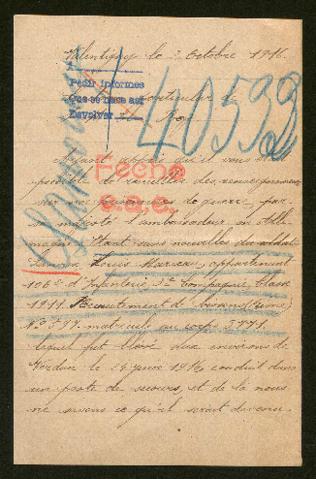 Valentigney le 2 Octobre 1916.
Pedir informes
Que se hace así
Devolver
particulier
Roi
40533
Ayant appris qu'il vous était
possible de recueillir des renseignements
sur nos prisonniers de guerre, par
Fecha
s.a.e.
l'ambassadeur en Alle
magne. Étant sans nouvelles du soldat
Louis Marceau, appartenant
106e d'Infanterie, 5e Compagnie, Classe
1911. Recrutement de
No 577. matricule au corps 5771.
lequel fut blessé aux environs de
Verdun le 24 juin 1916, conduit dans
un poste de secours, et de là nous
ne savons ce qu'il serait devenu.